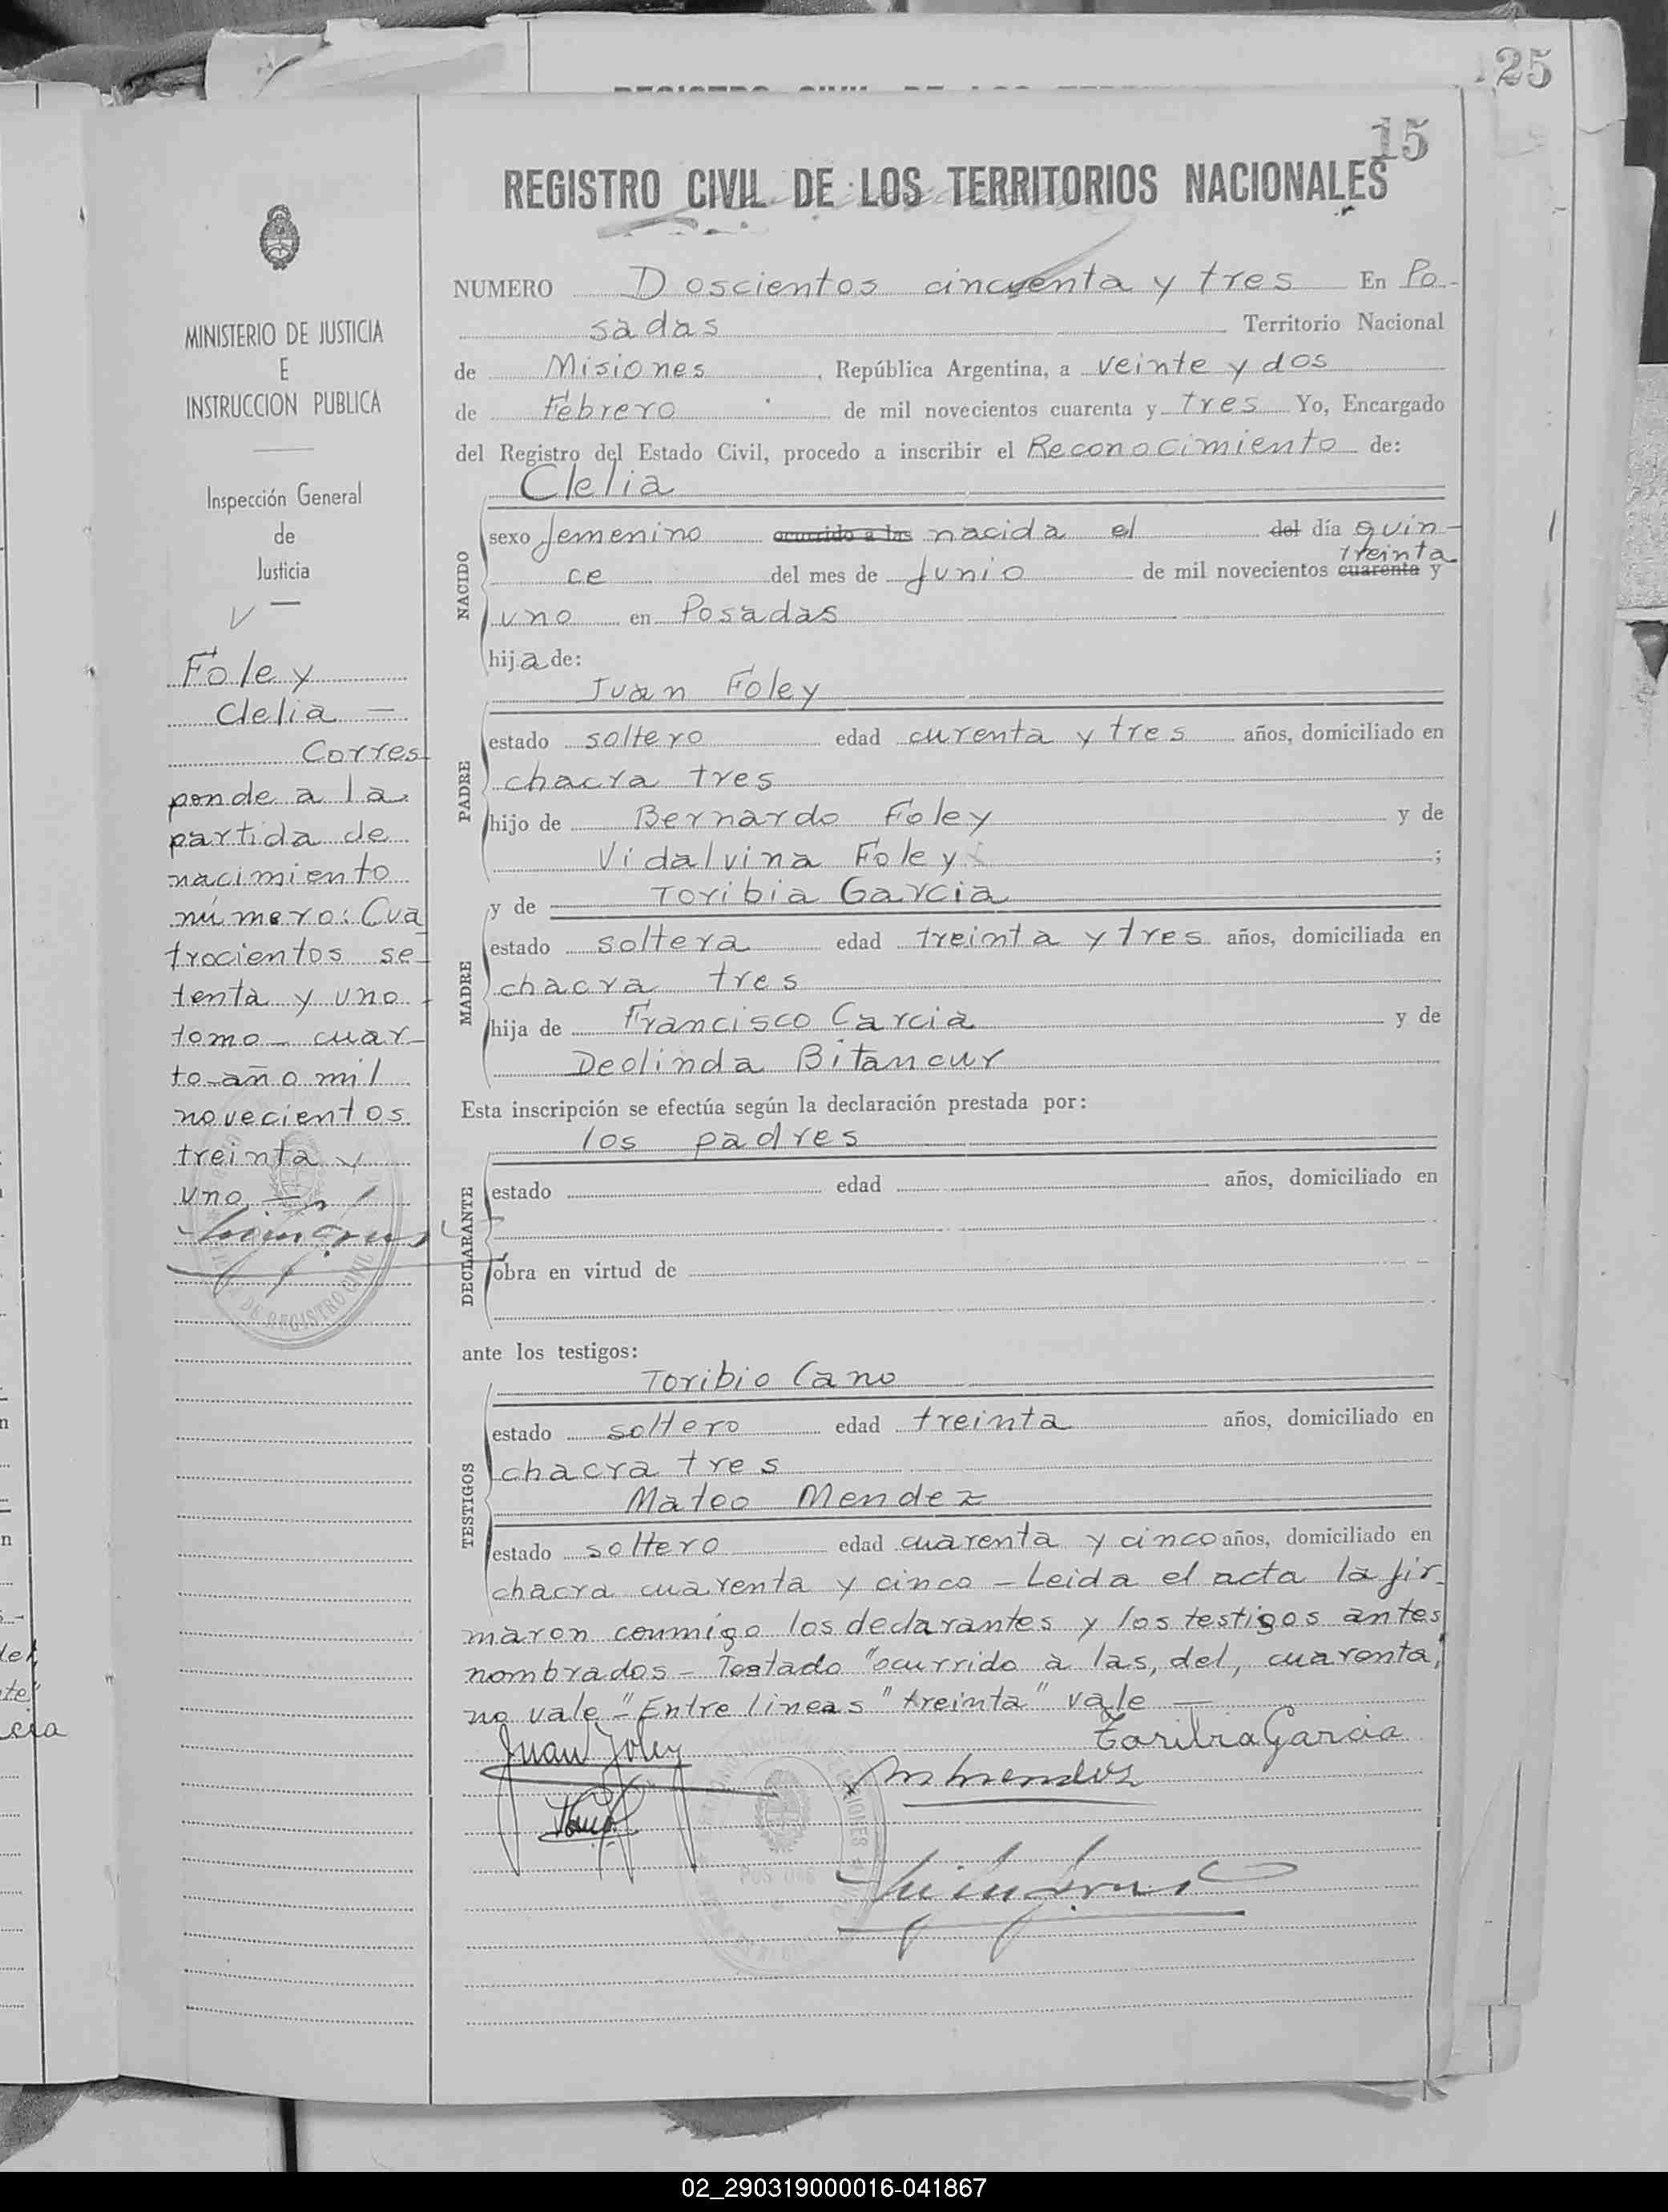 25
15
REGISTRO CIVIL DE LOS TERRITORIOS NACIONALES
MINISTERIO DE JUSTICIA
E
INSTRUCCION PUBLICA
Inspección General
de
Justicia
Foley
Clelia —
Corres-
ponde a la
partida de
nacimiento
número: Cua
trocientos se-
tenta y uno -
tomo - cuar-
to - año mil
novecientos
treinta y
uno —
NUMERO Doscientos cincuenta y tres En Po-
sadas Territorio Nacional
de Misiones, República Argentina, a veinte y dos
de Febrero de mil novecientos cuarenta y tres Yo, Encargado
del Registro del Estado Civil, procedo a inscribir el Reconocimiento de:
Clelia
NACIDO
sexo femenino ocurrido a las nacida el del día quin-
treinta
ce del mes de junio de mil novecientos cuarenta y
uno en Posadas
hija de:
Juan Foley
PADRE
estado soltero edad curenta y tres años, domiciliado en
chacra tres
hijo de Bernardo Foley y de
Vidalvina Foley ;
y de Toribia Garcia
MADRE
estado soltera edad treinta y tres años, domiciliada en
chacra tres
hija de Francisco Garcia y de
Deolinda Bitancur
Esta inscripción se efectúa según la declaración prestada por:
los padres
DECLARANTE
estado edad años, domiciliado en
obra en virtud de
ante los testigos:
Toribio Cano
TESTIGOS
estado soltero edad treinta años, domiciliado en
chacra tres
Mateo Mendez
estado soltero edad cuarenta y cinco años, domiciliado en
chacra cuarenta y cinco - Leida el acta la fir-
maron conmigo los declarantes y los testigos antes
nombrados - Testado "ocurrido a las, del, cuarenta,"
no vale - "Entre lineas" treinta" vale —
Juan Foley Toribia Garcia
M Mendez
02_290319000016-041867